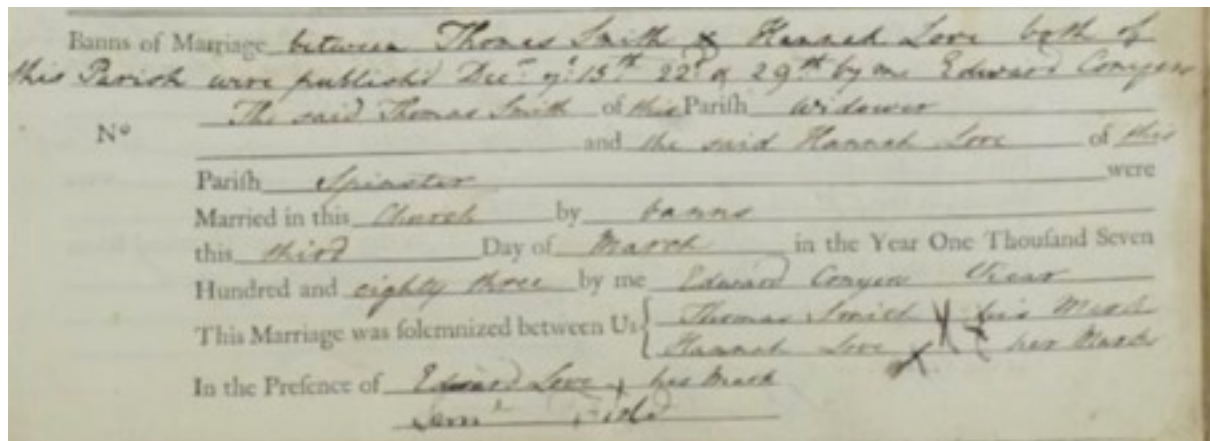 Banns of Marriage between Thomas Smith & Hannah Love both of
this Parish were publish'd Decr. ye. 15th 22d & 29th by me Edward Conyers
The said Thomas Smith of this Pariſh Widower
No and the said Hannah Love of this
Pariſh Spinster were
Married in this Church by banns
this third Day of March in the Year One Thouſand Seven
Hundred and eighty three by me Edward Conyers Vicar
This Marriage was ſolemnized between Us Thomas Smith X his Mark
Hannah Love X her Mark
In the Preſence of Edward Love + his Mark
Saml.